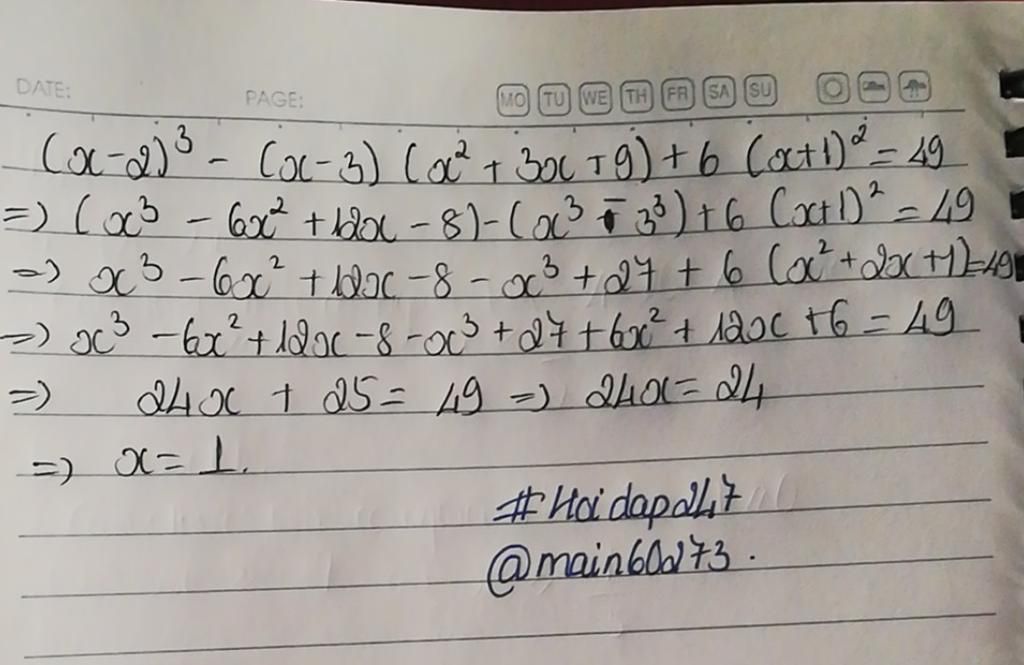 DATE: PAGE: MO TU WE TH FR SA SU
(x-2)³ - (x-3) (x² + 3x + 9) + 6 (x+1)² = 49
=> (x³ - 6x² + 12x - 8) - (x³ - 3³) + 6 (x+1)² = 49
=> x³ - 6x² + 12x - 8 - x³ + 27 + 6 (x² + 2x + 1) = 49
=> x³ - 6x² + 12x - 8 - x³ + 27 + 6x² + 12x + 6 = 49
=> 24x + 25 = 49 => 24x = 24
=> x = 1.
#Hoidap247
@main60273.